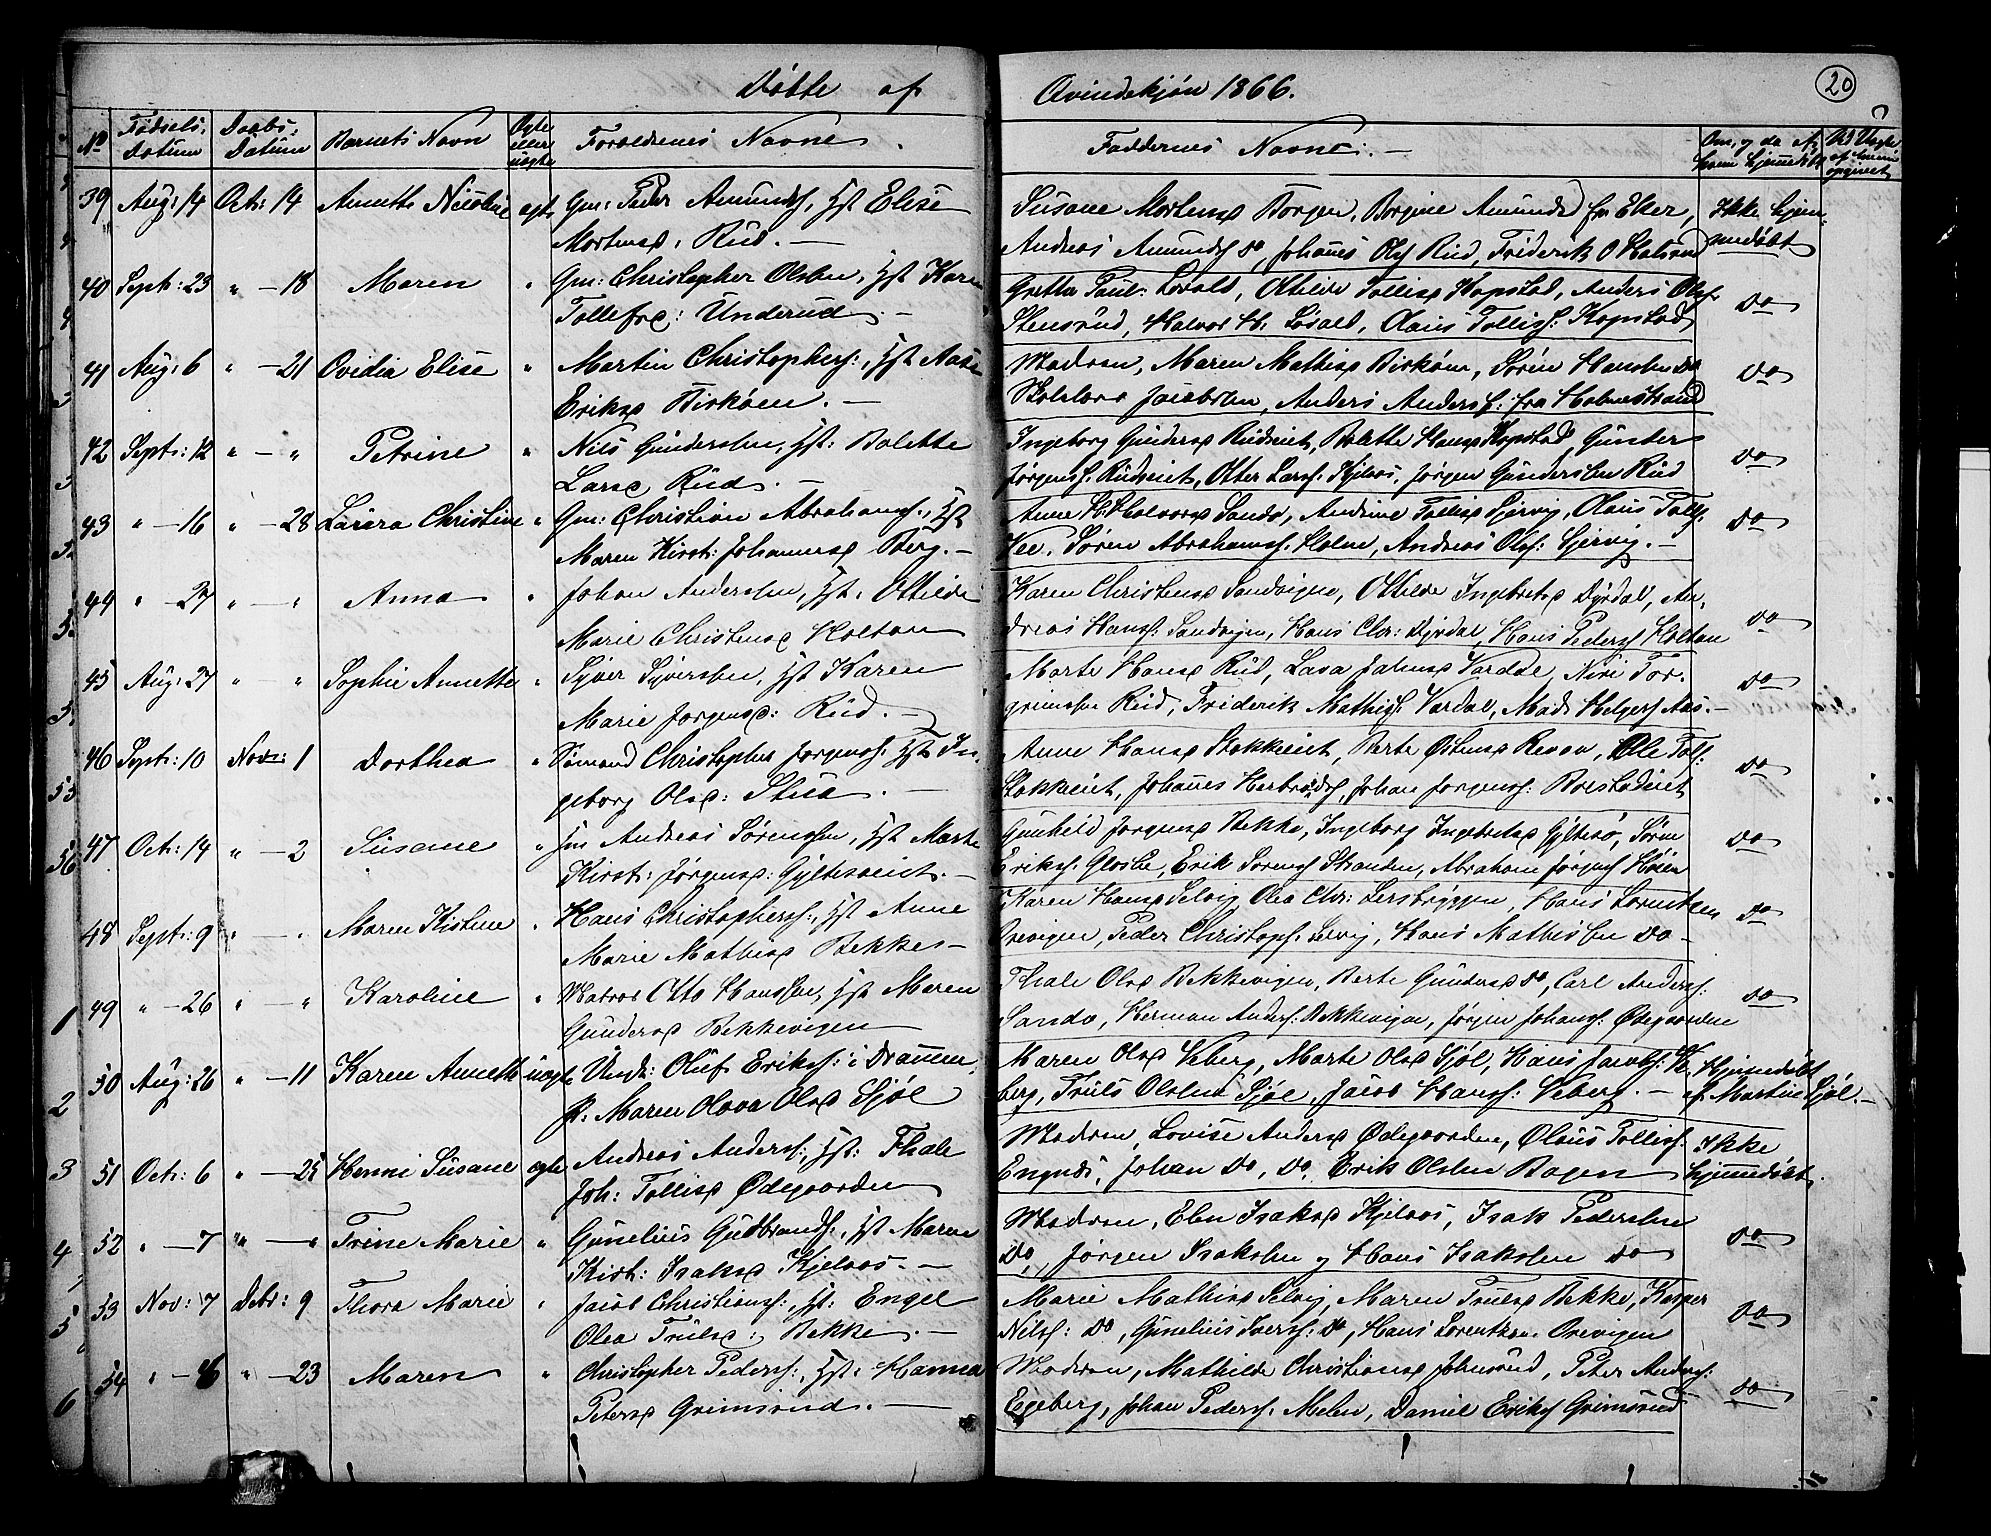 Døbte af Qvindekjøn 1866. 20
No Fødsels- Datum Daabs- Datum Barnets Navn Ægte eller uægte Forældrenes Navne. Faddernes Navne.
39 Aug: 14 Oct: 14 Annette Nicoline ægte Gm: Peder Amunds., Hst Elise
Mortensd: Rud.
Susane Mortensd Borgen, Borgine Amunds fra Eker, Ikke hjem-
Andreas Amunds do, Johannes Ols Rud, Friderik O Halsrud medøbt
40 Sept: 23 " 18 Maren " Gm: Christopher Olsen, Hst Karen
Tollefsd: Underud.
Grethe Paul: Løvald, Ottilde Tollisd Kopstad, Anders Ols do
Stensrud, Halvor H. Løsald, Olaus Tollis: Kopstad
41 Aug: 6 " 21 Ovidia Elise " Martin Christophers:, Hst Aase
Eriksd Birkøen.
Madren, Maren Mathisd Birkøen, Søren Hansen do do
Skolelærer Jacobsen, Anders Anders: fra Holmestrand
42 Sept: 12 " " Petrine " Nils Gundersen, Hst: Bolette
Larsd Rud.
Ingeborg Gundersd Rudseiet, Bolette Hansd Kopstad Gunder do
Jørgens. Rudseiet, Otter Lars: Kjelaas, Jørgen Gundersen Rud
43 " 16 " 28 Laura Christine " Gm: Christian Abrahams:, Hst
Maren Kirst: Johannesd Berg.
Anne H. Halvorsd Sando, Andrine Tollisd Gjervig, Olaus Tolls. do
Vee, Søren Abrahams. Holm, Andreas Ols: Gjervig.
44 " 27 " " Anna " Johan Andersen, Hst: Ottilde
Marie Christensd Holtan
Karen Christensd Sandvigen, Ottilde Ingebretsd Dyrdal, An- do
dreas Hans: Sandvigen, Hans Chr: Dyrdal, Hans Peders Holtan
45 Aug: 27 " " Sophie Annette " Syver Syversen, Hst Karen
Marie Jørgensd: Rud.
Marte Hansd Rud, Lava Jahnsd Vardde, Niri Tor- do
grimsen Rud, Friderik Mathis: Vardal, Mads Helgers Aas.
46 Sept: 10 Nov: 1 Dorthea " Sømand Christopher Jørgens: Hst In-
geborg Olsd: Stua.
Anne Hansd Stokkeeiet, Berte Østensd Revov, Ole Tolls: do
Stokkeeiet, Johannes Herbrands, Johan Jørgens: Borstadeiet
47 Oct: 14 " 2 Susane " Gm Andreas Sørensen, Hst Marte
Kirst: Jørgensd: Gyltesøeiet.
Gunhild Jørgensd Bekke, Ingeborg Ingebretsd Gyltesø, Søren do
Eriks: Glosli, Erik Sørens Stranden, Abraham Jørgens Høien
48 Sept: 9 " " Maren Kistine " Hans Christophers:, Hst Anne
Marie Mathisd Bekke
Karen Hansd Selvig, Olea Chr: Lersbryggen, Hans Lorentsen do
Orevigen, Peder Christoph: Selvig, Hans Mathisen do
49 " 26 " " Karoline " Matros Otto Hanssen, Hst Maren
Gundersd Bekkevigen
Thale Olsd Bekkevigen, Berte Gundersd do, Carl Anders: do
Sando, Herman Anders: Bekkevigen, Jørgen Johans: Ødegaarden
50 Aug: 26 " 11 Karen Annette uægte Ungk: Oluf Eriks: i Drammen,
P: Maren Olava Olsd Gjøl
Maren Olsd Veberg, Marte Olsd Gjøl, Hans Jacobs: Ve- Hjemedøbt
berg, Truls Olsen Gjøl, Jacob Hans: Veberg. af Martine Gjøl.
51 Oct: 6 " 25 Henni Susane ægte Andreas Anders:, Hst: Thale
Joh: Tollisd Ødegaarden
Madren, Lovise Andersd Ødegaarden, Olaus Tollis: Ikke
Engnæs, Johan do, do, Erik Olsen Bagen hjemedøbt.
52 " 7 " " Trine Marie " Gunelius Gudbrands:, Hst Maren
Kirst: Isaksd Kjelaas.
Madren, Elen Isaksd Kjelaas, Isak Pedersen do
do, Jørgen Isaksen og Hans Isaksen do
53 Nov: 7 Debr: 9 Thora Marie " Jacob Christians:, Hst: Engel
Olea Trulsd: Bekke.
Marie Mathisd Selvig, Maren Trulsd Bekke, Kasper do
Nils: do, Gunelius Ivers: do, Hans Lorentzen Orevigen
54 " 23 Maren " Christopher Peders:, Hst: Hanna
Petersd Grimsrud.
Madren, Mathilde Christiansd Johnsrud, Peter Anders: do
Egeberg, Johan Peders: Melen, Daniel Eriks Grimsrud